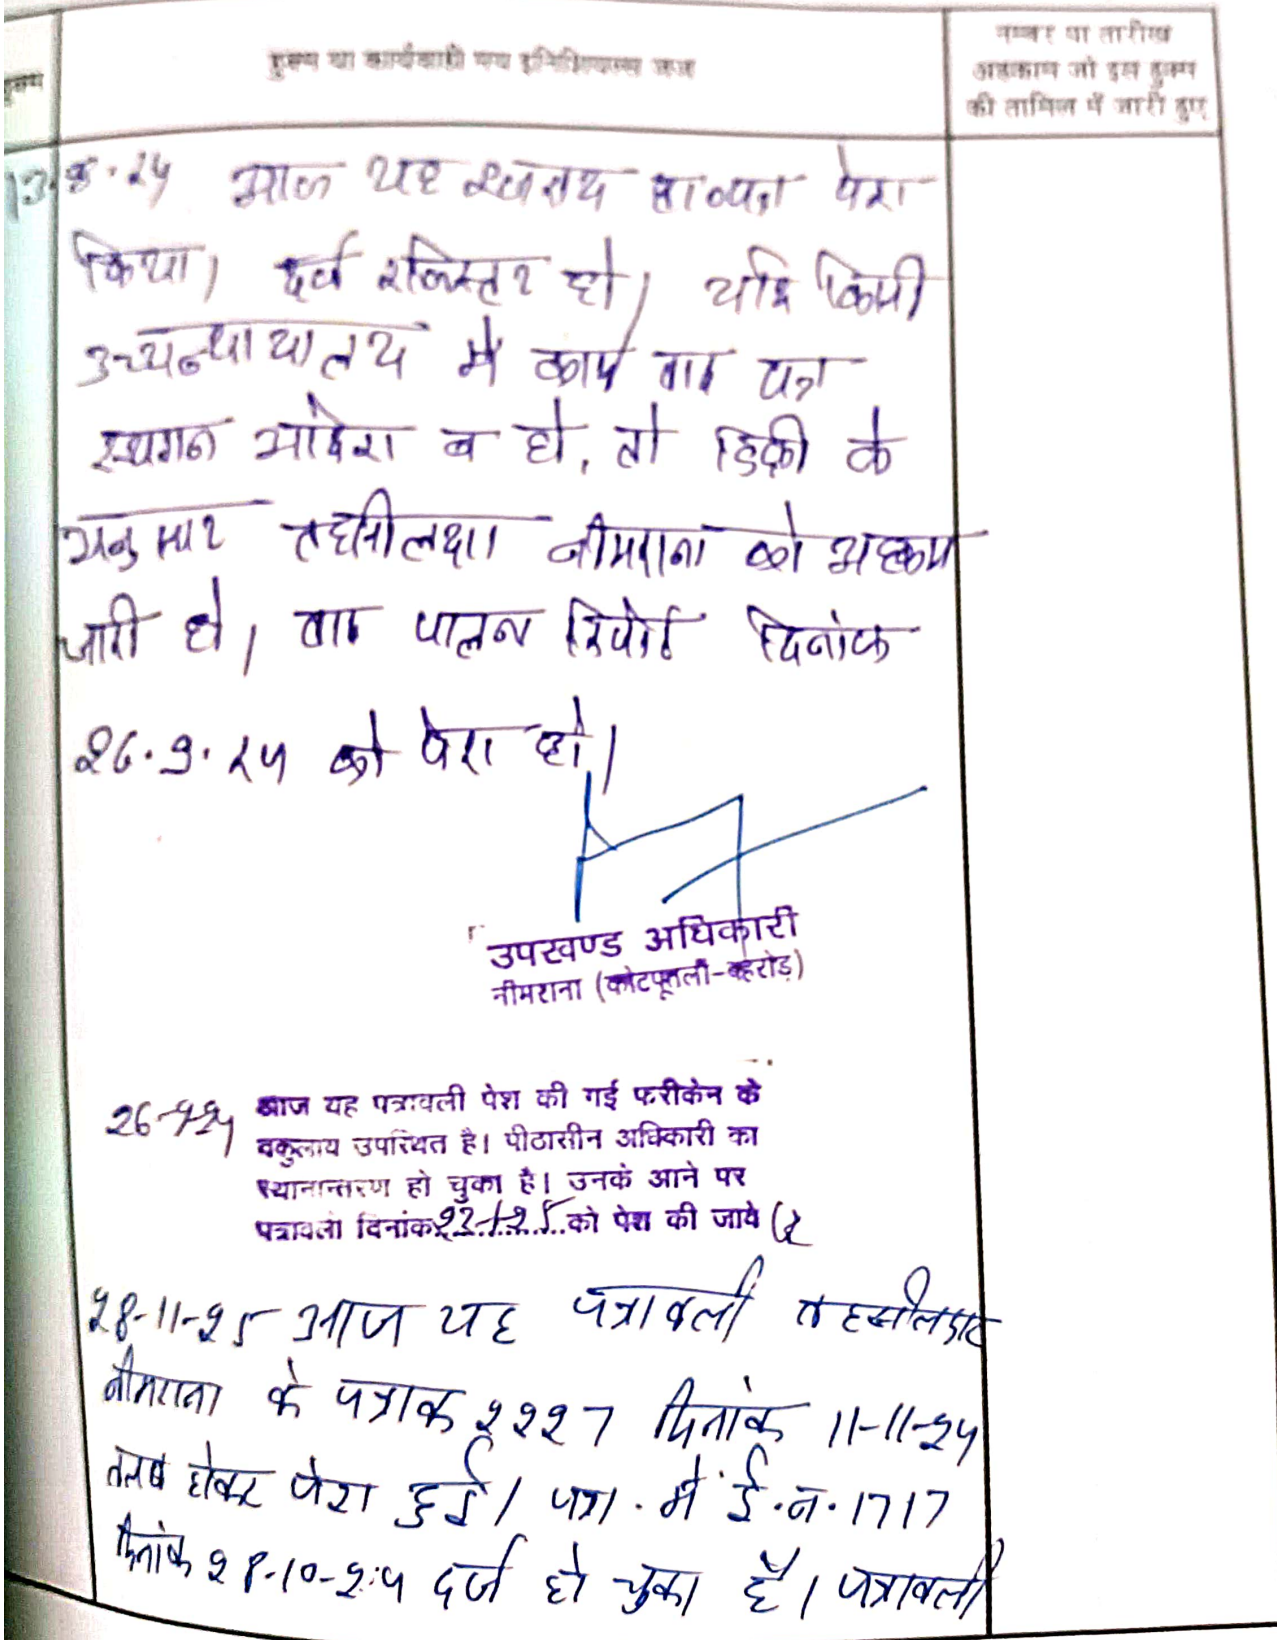 हुक्म
हुक्म या कार्यवाही मय इनिशियल्स जज
नम्बर या तारीख
अहकाम जो इस हुक्म
की तामिल में जारी हुए
13.8.24 आज यह पेश
किया। दर्ज रजिस्टर हो। यदि किसी
उच्चन्यायालय में कोई वाद पत्र
स्थगन आदेश न हो, तो डिक्री के
अनुसार तहसीलदार नीमराना को अहकाम
जारी हो। बाद पालन रिपोर्ट दिनांक
26.9.24 को पेश हो।
उपखण्ड अधिकारी
नीमराना (कोटपूतली-बहरोड़)
26-9-24 आज यह पत्रावली पेश की गई फरीकेन के
वकुलाय उपस्थित है। पीठासीन अधिकारी का
स्थानान्तरण हो चुका है। उनके आने पर
पत्रावली दिनांक 23-1-25 को पेश की जावे
28-11-25 आज यह पत्रावली तहसीलदार
नीमराना के पत्रांक 2227 दिनांक 11-11-24
तलब होकर पेश हुई। पत्रा. में ई.न. 1717
दिनांक 28-10-24 दर्ज हो चुका है। पत्रावली